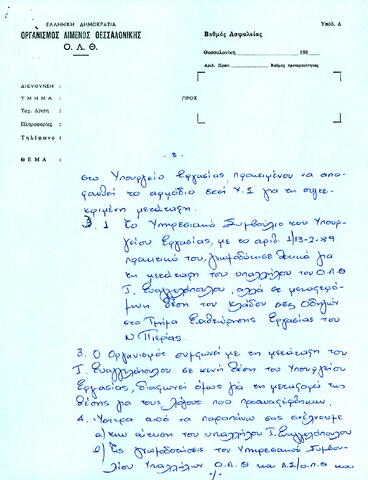 ΕΛΛΗΝΙΚΗ ΔΗΜΟΚΡΑΤΙΑ
ΟΡΓΑΝΙΣΜΟΣ ΛΙΜΕΝΟΣ ΘΕΣΣΑΛΟΝΙΚΗΣ
Ο. Λ. Θ.
Υπόδ. Δ
Βαθμός Ασφαλείας
Θεσσαλονίκη 198
Αριθ. Πρωτ. Βαθμός προτεραιότητας
ΔΙΕΥΘΥΝΣΗ :
ΤΜΗΜΑ :
Ταχ. Δ/νση :
Πληροφορίες :
Τηλέφωνο :
ΘΕΜΑ :
ΠΡΟΣ
- 3 -
στο Υπουργείο Εργασίας προκειμένου να απο-
φανθεί το αρμόδιο εκεί Υ.Σ για τη συγκε-
κριμένη μετάταξη.
3. 1 Το Υπηρεσιακό Συμβούλιο του Υπουρ-
γείου Εργασίας, με το αριθ. 1/13-2-89
πρακτικό του, γνωμοδότησε θετικά για
τη μετάταξη του υπαλλήλου του Ο.Λ.Θ
Γ. Ευαγγελόπουλου, αλλά σε μεταφερό-
μενη θέση του κλάδου ΔΕ5 Οδηγών
στο Τμήμα Επιθεώρησης Εργασίας του
Ν Πιερίας.
3. Ο Οργανισμός συμφωνεί με τη μετάταξη του
Γ. Ευαγγελόπουλου σε κενή θέση του Υπουργείου
Εργασίας, διαφωνεί όμως για τη μεταφορά της
θέσης για τους λόγους που προαναφέρθηκαν.
4. Ύστερα από τα παραπάνω σας στέλνουμε
α) την αίτηση του υπαλλήλου Γ. Ευαγγελόπουλου
β) τις γνωμοδοτήσεις του Υπηρεσιακού Συμβου-
λίου Υπαλλήλων Ο.Λ.Θ και Δ.Σ/Ο.Λ.Θ και
./.